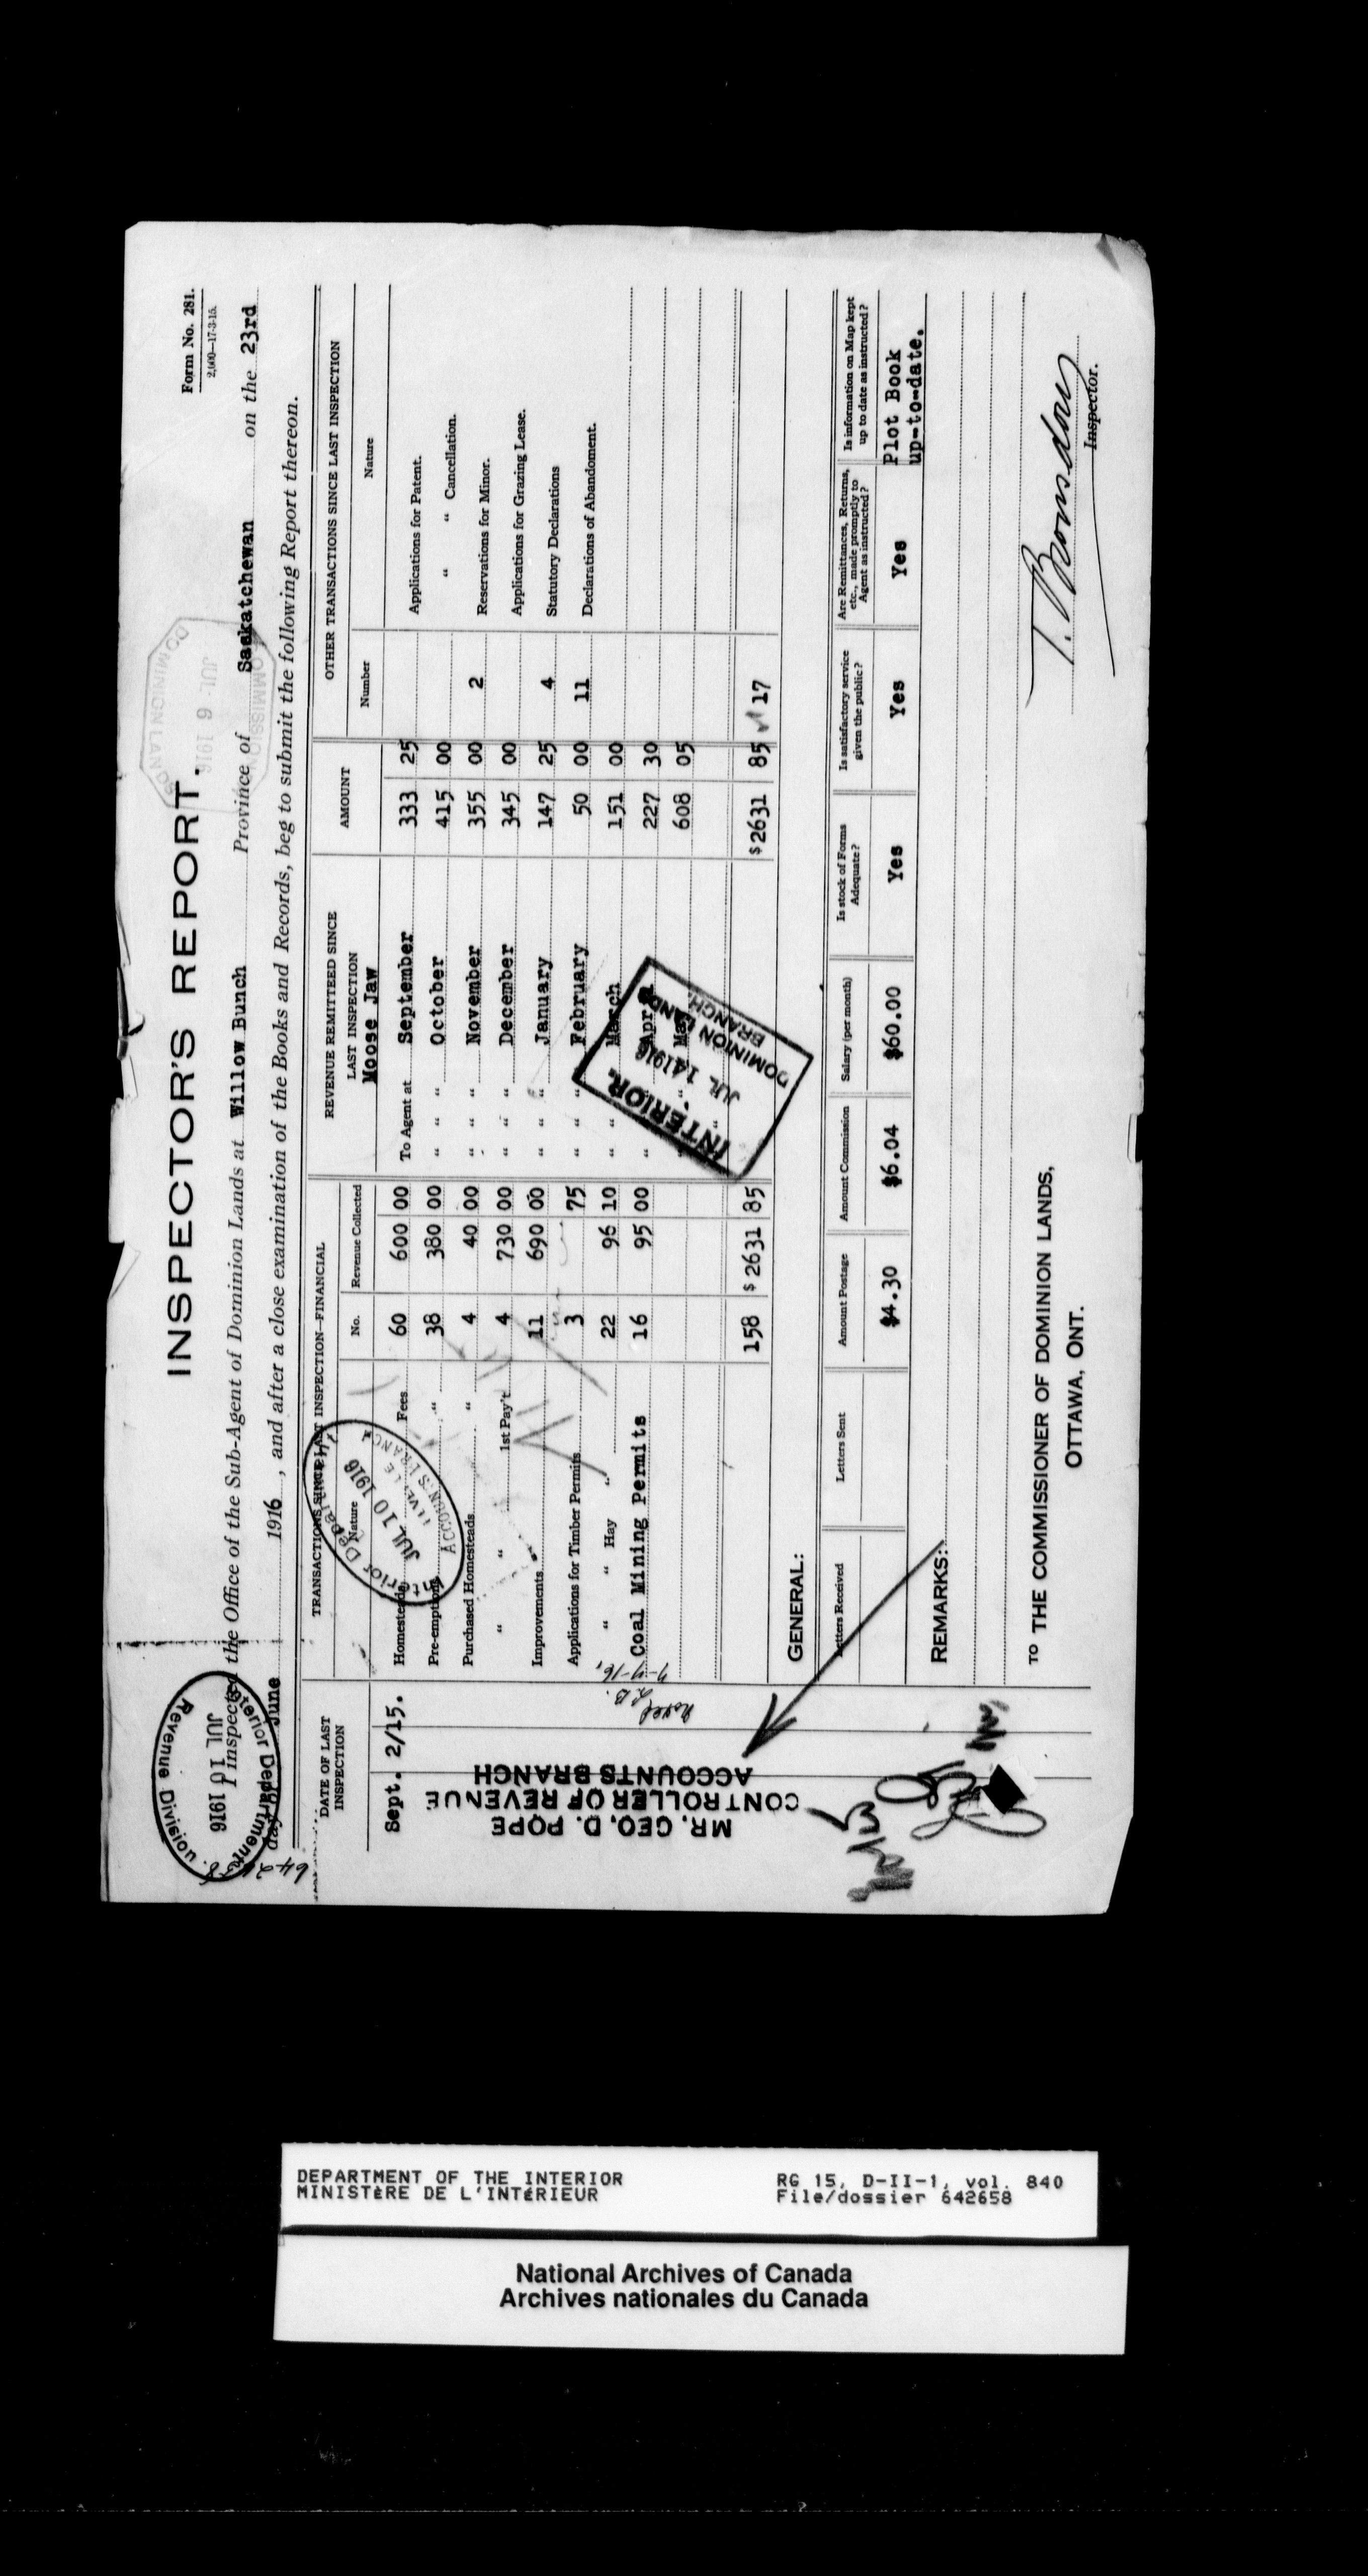 Form No. 281.
2,000—17-3-15.
INSPECTOR'S REPORT.
I inspected the Office of the Sub-Agent of Dominion Lands at Willow Bunch Province of Saskatchewan on the 23rd
day of June 1916, and after a close examination of the Books and Records, beg to submit the following Report thereon.
Interior Department
JUL 10 1916
Revenue Division.
COMMISSIONER
JUL 6 1916
DOMINION LANDS
DATE OF LAST INSPECTION
Sept. 2/15.
TRANSACTIONS SINCE LAST INSPECTION—FINANCIAL
Nature No. Revenue Collected
Homesteads Fees 60 600 00
Pre-emptions " 38 380 00
Purchased Homesteads " 4 40 00
" " 1st Pay't 4 730 00
Improvements 11 690 00
Applications for Timber Permits 3 75
" " Hay " 22 96 10
Coal Mining Permits 16 95 00
158 $ 2631 85
Interior Department
JUL 10 1916
ACCOUNTS BRANCH
REVENUE REMITTEED SINCE LAST INSPECTION
AMOUNT
Moose Jaw
To Agent at September 333 25
" " " October 415 00
" " " November 355 00
" " " December 345 00
" " " January 147 25
" " " February 50 00
" " March 151 00
" April 227 30
" " May 608 05
$2631 85
INTERIOR.
JUL 14 1916
DOMINION LANDS
BRANCH
OTHER TRANSACTIONS SINCE LAST INSPECTION
Number Nature
Applications for Patent.
" " Cancellation.
2 Reservations for Minor.
Applications for Grazing Lease.
4 Statutory Declarations
11 Declarations of Abandoment.
17
GENERAL:
Letters Received
Letters Sent
Amount Postage
$4.30
Amount Commission
$6.04
Salary (per month)
$60.00
Is stock of Forms Adequate?
Yes
Is satisfactory service given the public?
Yes
Are Remittances, Returns, etc., made promptly to Agent as instructed?
Yes
Is information on Map kept up to date as instructed?
Plot Book
up-to-date.
REMARKS:
MR. GEO. D. POPE
CONTROLLER OF REVENUE
ACCOUNTS BRANCH
TO THE COMMISSIONER OF DOMINION LANDS,
OTTAWA, ONT.
Inspector.
DEPARTMENT OF THE INTERIOR
MINISTÈRE DE L'INTÉRIEUR
RG 15, D-II-1, vol. 840
File/dossier 642658
National Archives of Canada
Archives nationales du Canada